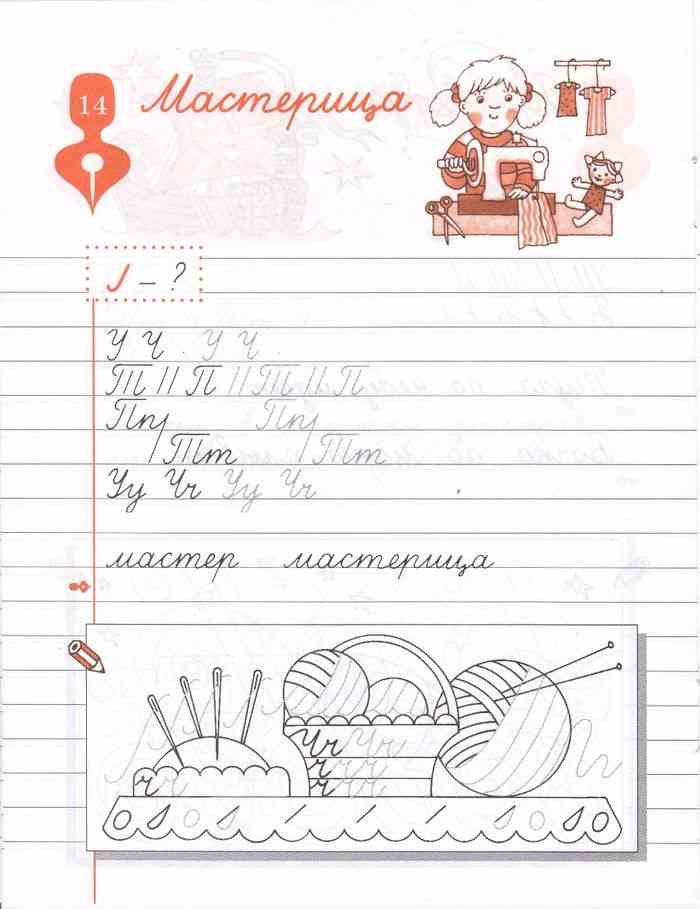 14 Мастерица
– ?
У Ч . У Ч .
Т // П // Т // П
Пп / Пп /
/ Тт / Тт
Уу Чч Уу Чч
мастер мастерица
Чч Чч
ч ч ч
ч ч ч ч ч